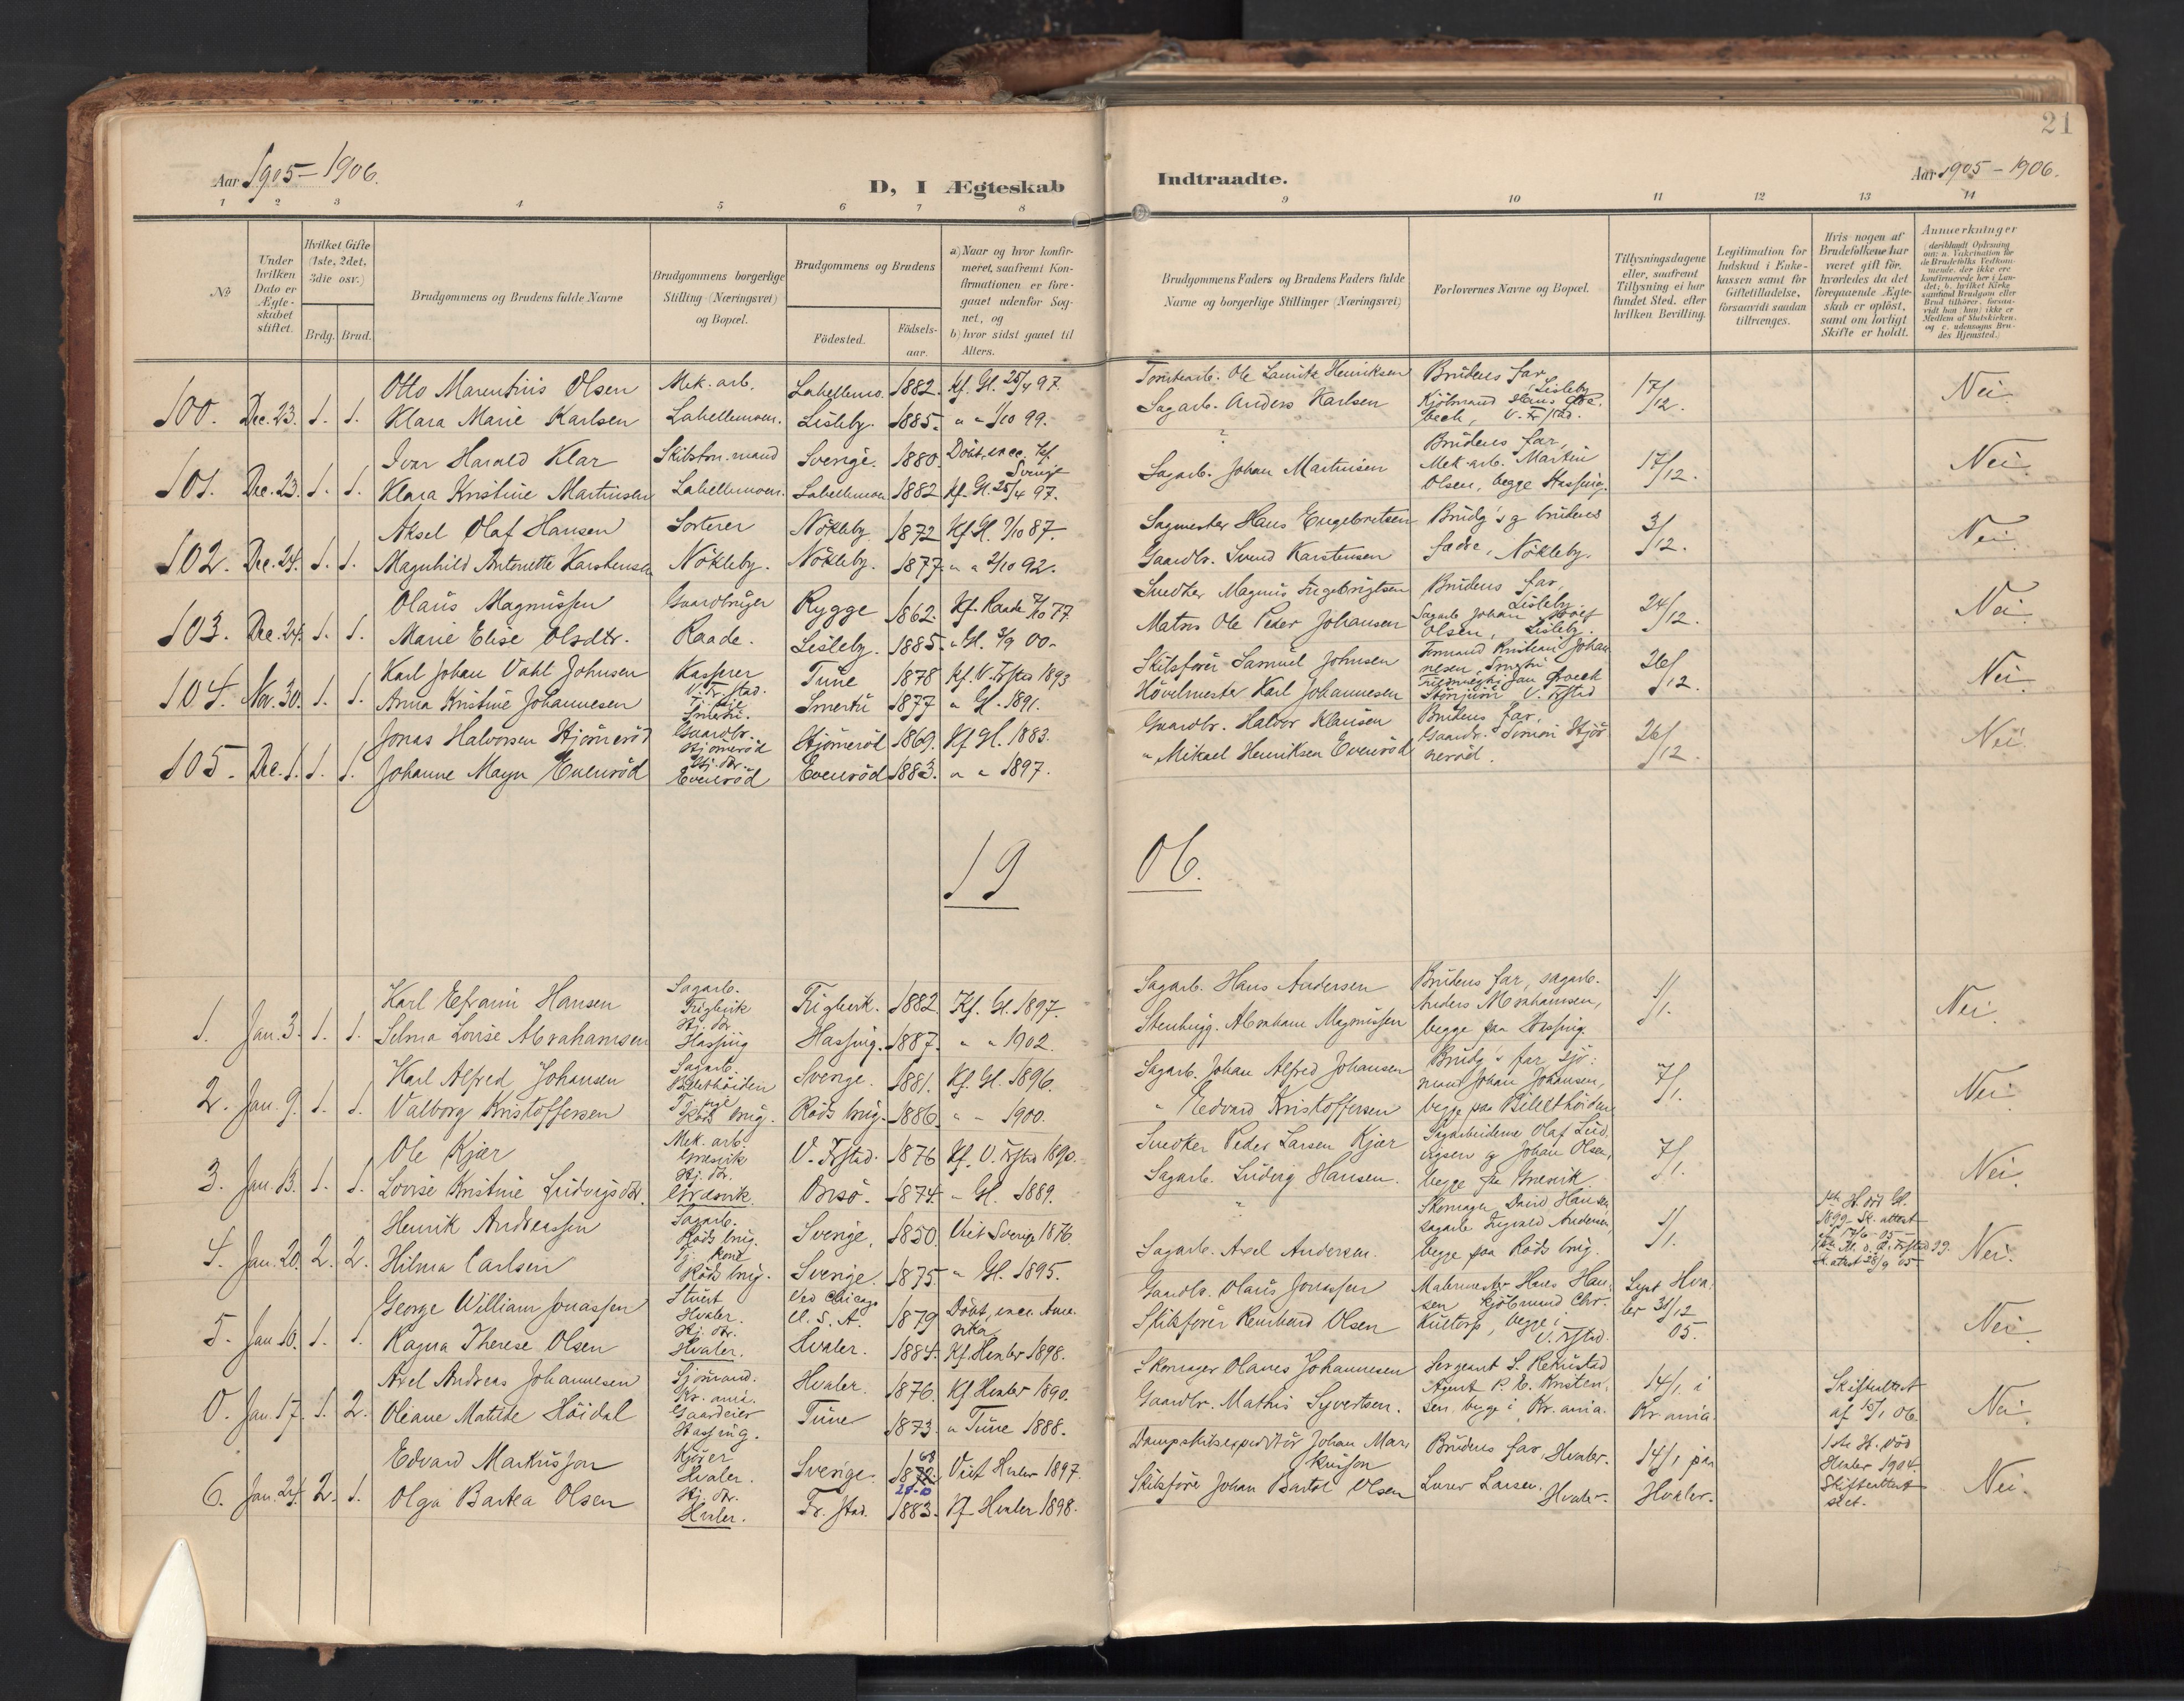 21
Aar 1905-1906.
D, I Ægteskab
Indtraadte.
Aar 1905-1906.
1 2 3 4 5 6 7 8 9 10 11 12 13 14
No
Under hvilken Dato er Ægteskabet stiftet.
Hvilket Gifte (1ste, 2det, 3die osv.)
Brdg. Brud.
Brudgommens og Brudens fulde Navne
Brudgommens borgerlige Stilling (Næringsvei) og Bopæl.
Brudgommens og Brudens
Födested.
Födselsaar.
a) Naar og hvor konfirmeret, saafremt Konfirmationen er foregaaet udenfor Sognet, og
b) hvor sidst gaaet til Alters.
Brudgommens Faders og Brudens Faders fulde Navne og borgerlige Stillinger (Næringsvei)
Forlovernes Navne og Bopæl.
Tillysningsdagene eller, saafremt Tillysning ei har fundet Sted, efter hvilken Bevilling.
Legitimation for Indskud i Enkekassen samt for Giftetilladelse, forsaavidt saadan tiltrænges.
Hvis nogen af Brudefolkene har været gift før, hvorledes da det foregaaende Ægteskab er oplöst, samt om lovligt Skifte er holdt.
Anmerkninger
100. Dec. 23. 1. 1.
Otto Marentius Olsen Mek. arb. Labellmo. 1882. Kf. Gl. 25/4 97.
Klara Marie Karlsen Labellmoen. Lisleby. 1885. " " 1/10 99.
Tomtearb. Ole Lauritz Henriksen
Sagarb. Anders Karlsen
Brudens far, Lisleby
Kjöbmand
17/12. Nei.
101. Dec. 23. 1. 1.
Ivar Harald Klar Sverige. 1880.
Klara Kristine Martinsen Labellmoen. Labellmoen 1882 Kf. Gl. 25/4 97.
?
Sagarb. Johan Martinsen
Brudens far,
Mek. arb. Martin
Olsen, begge Hassing.
17/12. Nei.
102. Dec. 24. 1. 1.
Aksel Olaf Hansen Sorterer Nökleby 1872 Kf. Gl. 2/10 87.
Magnhild Antonette Karstensen Nökleby. Nökleby. 1877. " " 2/10 92.
Sagmester Hans Engebretsen
Gaardbr. Svend Karstensen
Brudg's og brudens
fædre, Nökleby.
3/12. Nei.
103. Dec. 24. 1. 1.
Olaus Magnussen Gaardbruger Rygge 1862. Kf. Raade 7/10 77.
Marie Elise Olsdtr. Raade. Lisleby. 1885. " Gl. 3/9 00.
Snedker Magnus Ingebrigtsen
Matros Ole Peder Johansen
Brudens far, Lisleby.
Sagarb. Johan
Olsen, Lisleby.
24/12. Nei.
104. Nov. 30. 1. 1.
Karl Johan Vahl Johnsen Kasserer V. Fr. stad. Tune 1878 Kf. V. Frstad 1893
Anna Kristine Johannesen Smertu. Smertu 1877 " Gl. 1891.
Skibsförer Samuel Johnsen
Hövelmester Karl Johannesen
Formand Kristian Johannesen, Smertu
V. Frstad
26/12. Nei.
105. Dec. 1. 1. 1.
Jonas Halvorsen Stjörneröd Gaardbr. Stjörneröd Stjörneröd 1869. Kf. Gl. 1883.
Johanne Mayn Eveneröd Hj. dtr. Eveneröd Eveneröd 1883. " " 1897.
Gaardbr. Halvor Klausen
" Mikael Henriksen Eveneröd
Brudens far,
Gaardbr. Simon Stjörneröd.
26/12. Nei.
19 06.
1. Jan. 3. 1. 1.
Karl Efraim Hansen Sagarb. Trigberk. 1882 Kf. Gl. 1897.
Selma Lovise Abrahamsen Hj. dtr. Hassing Hassing. 1887. " " 1902.
Sagarb. Hans Andersen
Stenhugg. Abraham Magnussen
Brudens far, sagarb.
Anders Abrahamsen,
begge paa Hassing.
1/1. Nei.
2. Jan. 9. 1. 1.
Karl Alfred Johansen Sagarb. Bilethöiden Sverige. 1881. Kf. Gl. 1896.
Valborg Kristoffersen Röds brug. Röds brug. 1886. " - 1900.
Sagarb. Johan Alfred Johansen
" Edvard Kristoffersen
Brudg's far, sjömand Johan Johansen,
begge paa Bilethöiden
7/1. Nei.
3. Jan. 13. 1. 1.
Ole Kjær Mek. arb. Græsvik V. Frstad. 1876 Kf. V. Frstad 1890.
Lovise Kristine Ludvigsdtr. Hj. dtr. Græsvik. Onsö. 1874. " Gl. 1889.
Snedker Peder Larsen Kjær
Sagarb. Ludvig Hansen.
Sagarbeiderne Olaf Ludvigsen og Johan Olsen,
begge fra Græsvik.
7/1. Nei.
4. Jan. 20. 2. 2.
Henrik Andreassen Sagarb. Röds brug. Sverige, 1850. Viet Sverige 1876.
Hilma Carlsen Röds brug. Sverige. 1875. " Gl. 1895.
"
Sagarb. Axel Andersen.
Skomager David Hansen,
sagarb. Sigvald Andersen,
begge paa Röds brug.
1/1.
1899. Sk. attest
af 17/6 05
Sk. attest 28/9 05
Nei.
5. Jan. 10. 1. 1.
George William Jonassen Stuert Hvaler. Ved Chicago U. S. A. 1879 Döbt, vacc. Amerika
Ragna Therese Olsen Hj. dtr. Hvaler. Hvaler. 1884. Kf. Hvaler 1898.
Gaardbr. Olaus Jonassen
Skibsförer Reinhard Olsen
Malermester Hans Hansen
kjöbmand Chr.
Kultorp, begge i
V. Frstad.
Lyst Hvaler 31/12
05. Nei.
0. Jan. 17. 1. 2.
Axel Andreas Johannesen Sjömand. Kr. ania. Hvaler. 1876. Kf Hvaler 1890.
Oleane Matilde Höidal Gaardeier Hassing. Tune 1873. " Tune 1888.
Skomager Olaves Johannesen
Gaardbr. Mathis Syvertsen.
Sergeant S. Rekustad
Agent P. E. Kristensen, begge i Kr. ania.
14/1. i
Kr. ania
Skifteattest
af 15/1 06.
Nei.
6. Jan. 24. 2. 1.
Edvard Markusson Kjöier Hvaler. Sverige. 1872. 68 Viet Hvaler 1897.
Olga Bartea Olsen Hj. dtr. Hvaler. Fr. stad. 1883. Kf Hvaler 1898.
Dampskibsexpeditör Johan Markusson
Skibsförer Johan Bartol Olsen
Brudens far, Hvaler.
Larsen, Hvaler.
14/1 paa
Hvaler.
1ste H. död
Hvaler 1904.
Skifteattest
Nei.